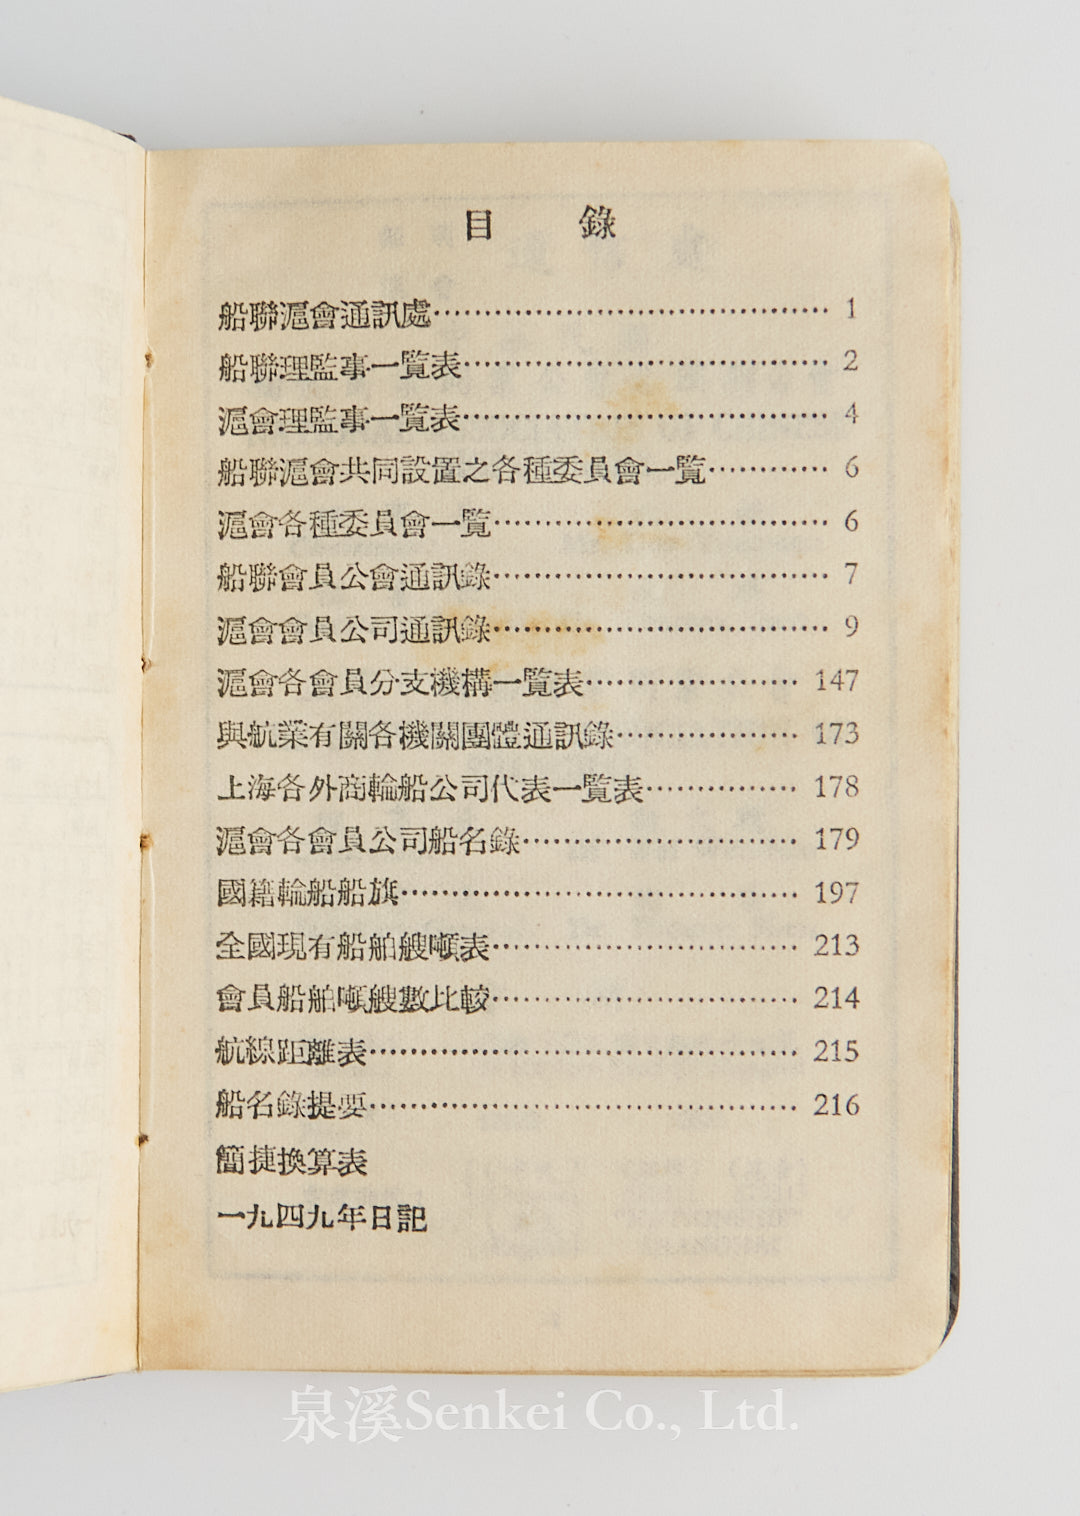 目 錄
船聯滬會通訊處 1
船聯理監事一覧表 2
滬會理監事一覧表 4
船聯滬會共同設置之各種委員會一覧 6
滬會各種委員會一覧 6
船聯會員公會通訊錄 7
滬會會員公司通訊錄 9
滬會各會員分支機構一覧表 147
與航業有關各機關團體通訊錄 173
上海各外商輪船公司代表一覧表 178
滬會各會員公司船名錄 179
國籍輪船船旗 197
全國現有船舶艘噸表 213
會員船舶噸艘數比較 214
航線距離表 215
船名錄提要 216
簡捷換算表
一九四九年日記
泉溪Senkei Co., Ltd.